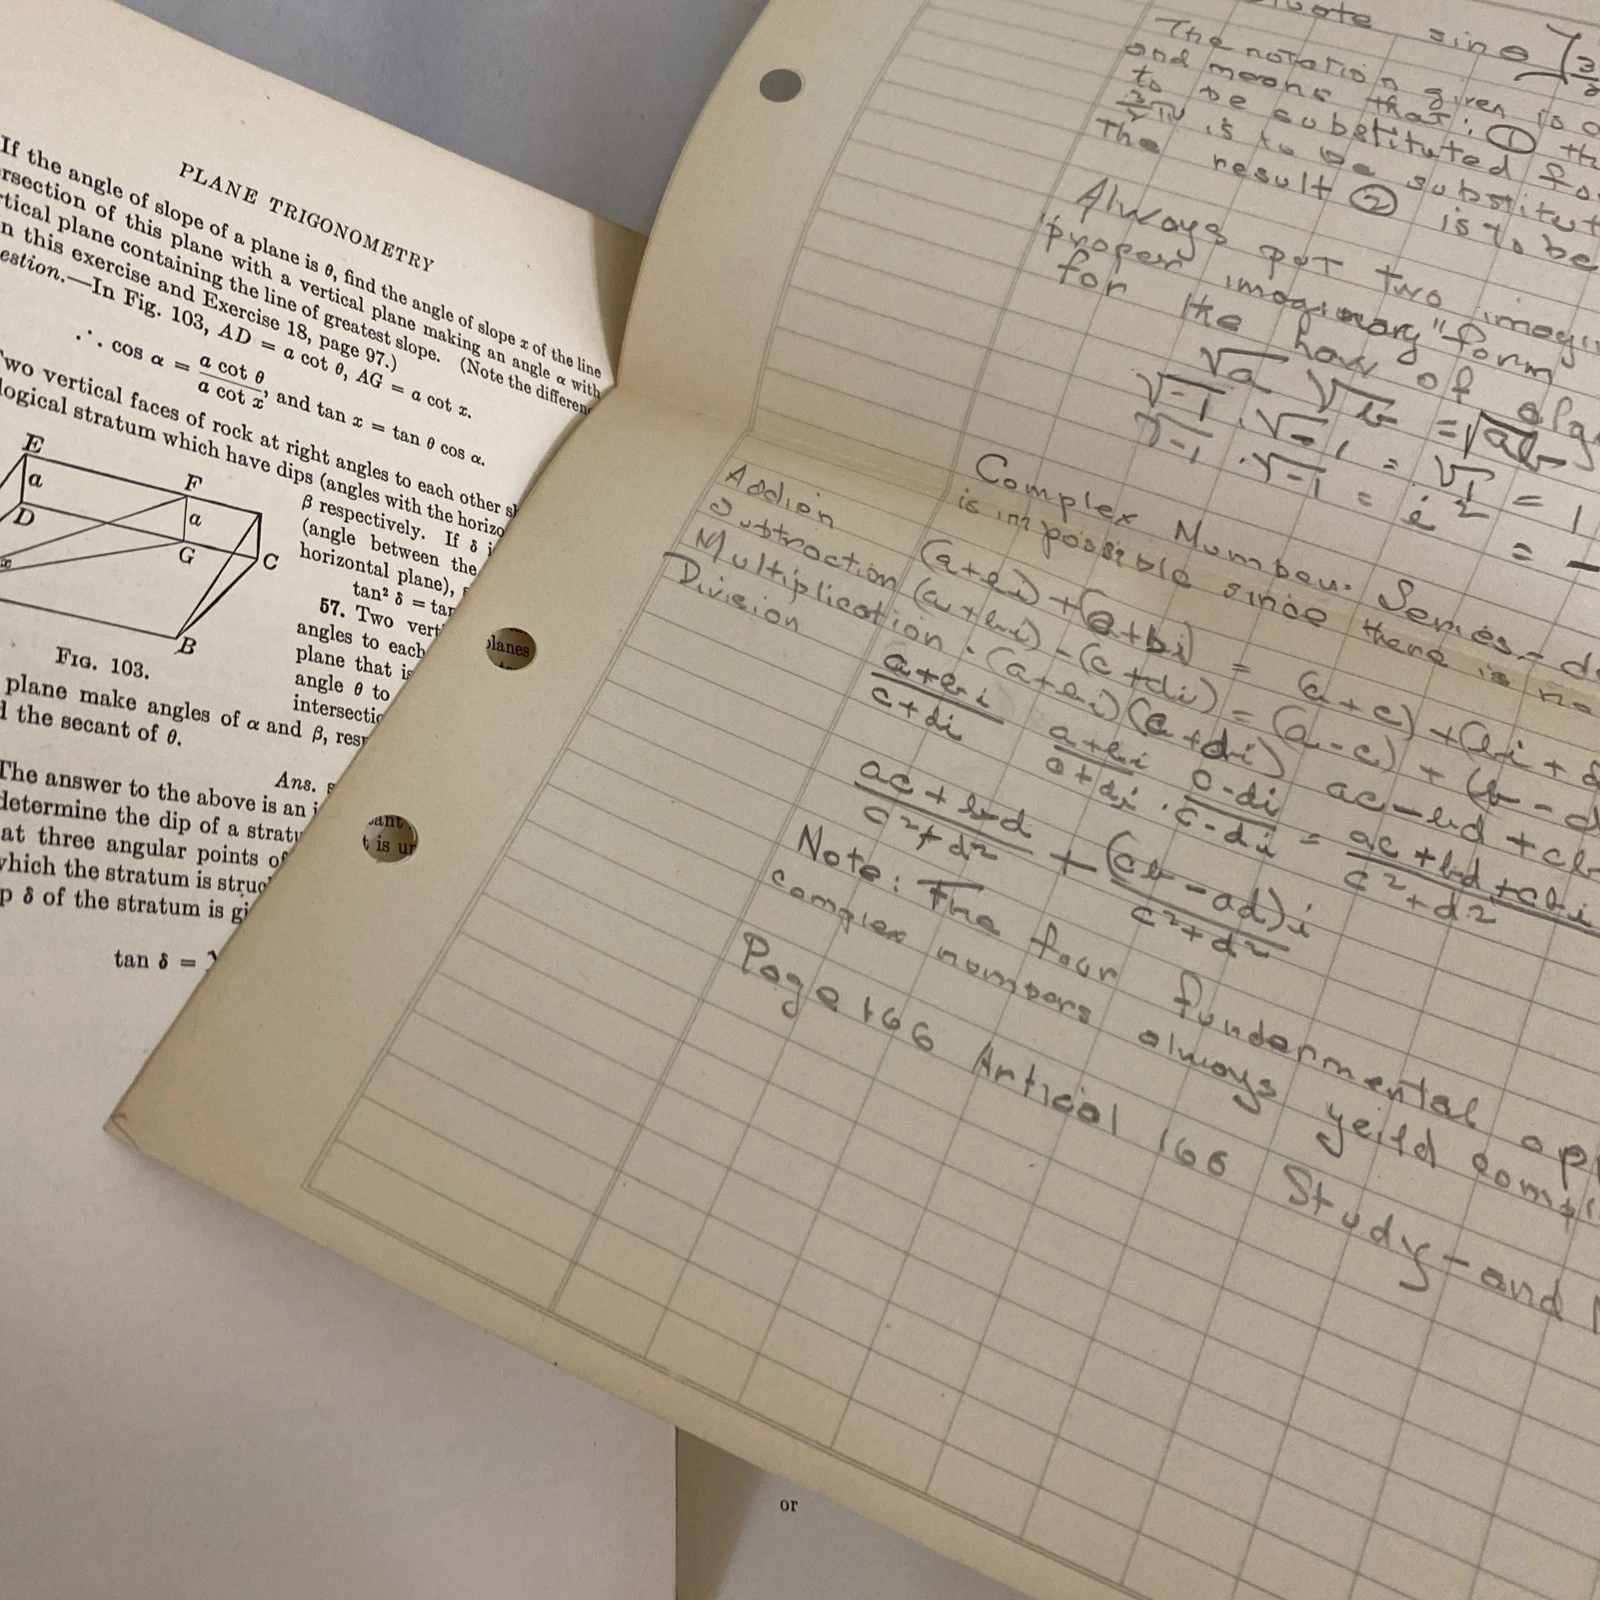 PLANE TRIGONOMETRY
If the angle of slope of a plane is θ, find the angle of slope x of the line
rsection of this plane with a vertical plane making an angle α with
rtical plane containing the line of greatest slope. (Note the differenc
n this exercise and Exercise 18, page 97.)
estion.—In Fig. 103, AD = a cot θ, AG = a cot x.
∴ cos α = a cot θ / a cot x, and tan x = tan θ cos α.
Two vertical faces of rock at right angles to each other sh
logical stratum which have dips (angles with the horizo
β respectively. If δ i
(angle between the
horizontal plane),
tan² δ = tan
57. Two vert
angles to each
plane that is
angle θ to
intersectio
E
F
a
a
D
G
C
x
B
FIG. 103.
plane make angles of α and β, resp
d the secant of θ.
Ans. s
The answer to the above is an i
determine the dip of a stratu
at three angular points of
which the stratum is struc
p δ of the stratum is gi
tan δ =
planes
t is ur
or
sin θ
The notation given is
and means that: ① th
to be substituted fo
3/2 π is to be substitut
The result ② is to be
Always put two imagi
"proper imaginary" form
for the haw of alg
√a √b = √ab
√-1 . √-1 = √1 = 1
√-1 . √-1 = i² = -
Complex Number. Series - d
is impossible since there is no
Addion (a+bi) + (c+bi) = (a+c) + (bi + d
Subtraction (a+bi) - (c+di) = (a-c) + (b-d
Multiplication . (a+bi)(c+di) ac-bd + cb
Division a+bi / c+di a+bi / c+di . c-di / c-di = ac+bd+cbi / c²+d²
ac+bd / c²+d² + (cb-ad)i / c²+d²
Note: The four fundermental op
complex numbers always yeild compl
Page 166 Artical 166 Study - and